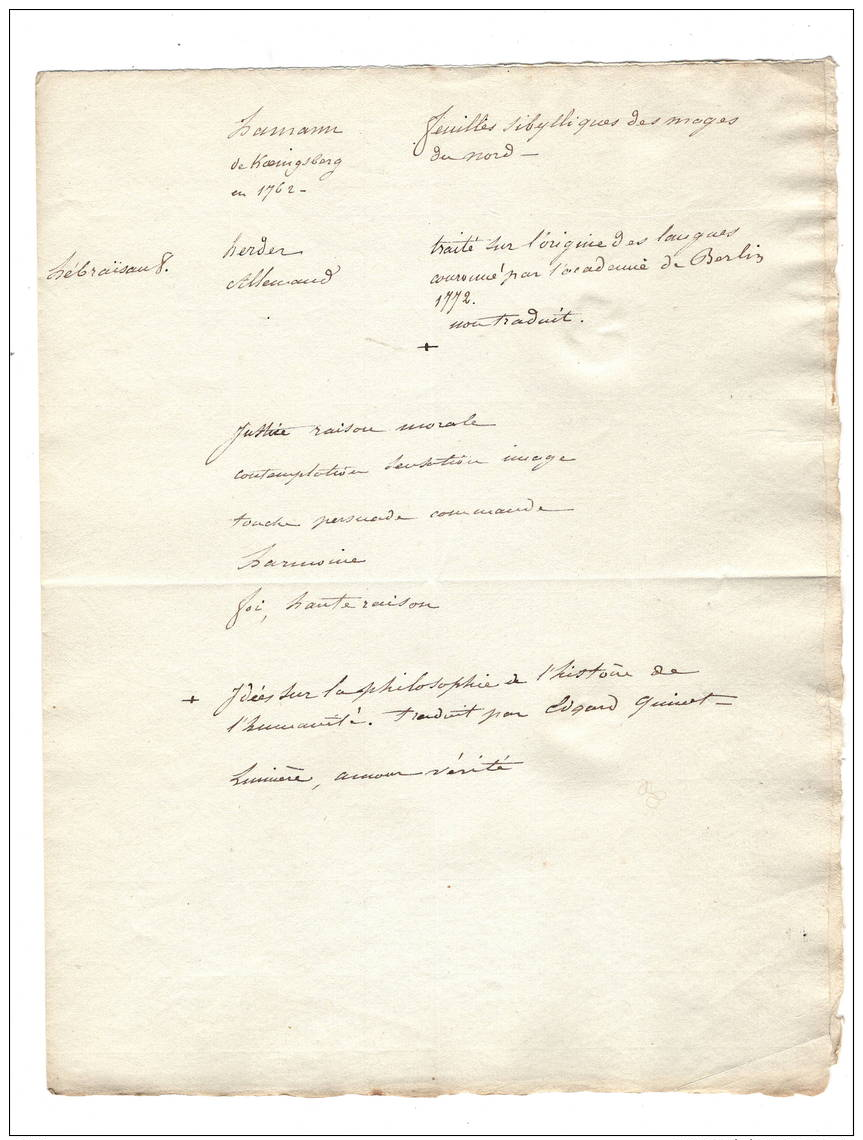 hamann
de Kœnigsberg
en 1762 –
feuilles sibylliques des mages
du nord –
hébraïsant.
herder
Allemand
traité sur l'origine des langues
couronné par l'académie de Berlin
1772.
non traduit.
+
Justice raison morale
contemplation sensation image
touche persuade commande
harmonie
foi, haute raison
+ Idées sur la philosophie de l'histoire de
l'humanité. traduit par Edgard Quinet –
Lumière, amour vérité